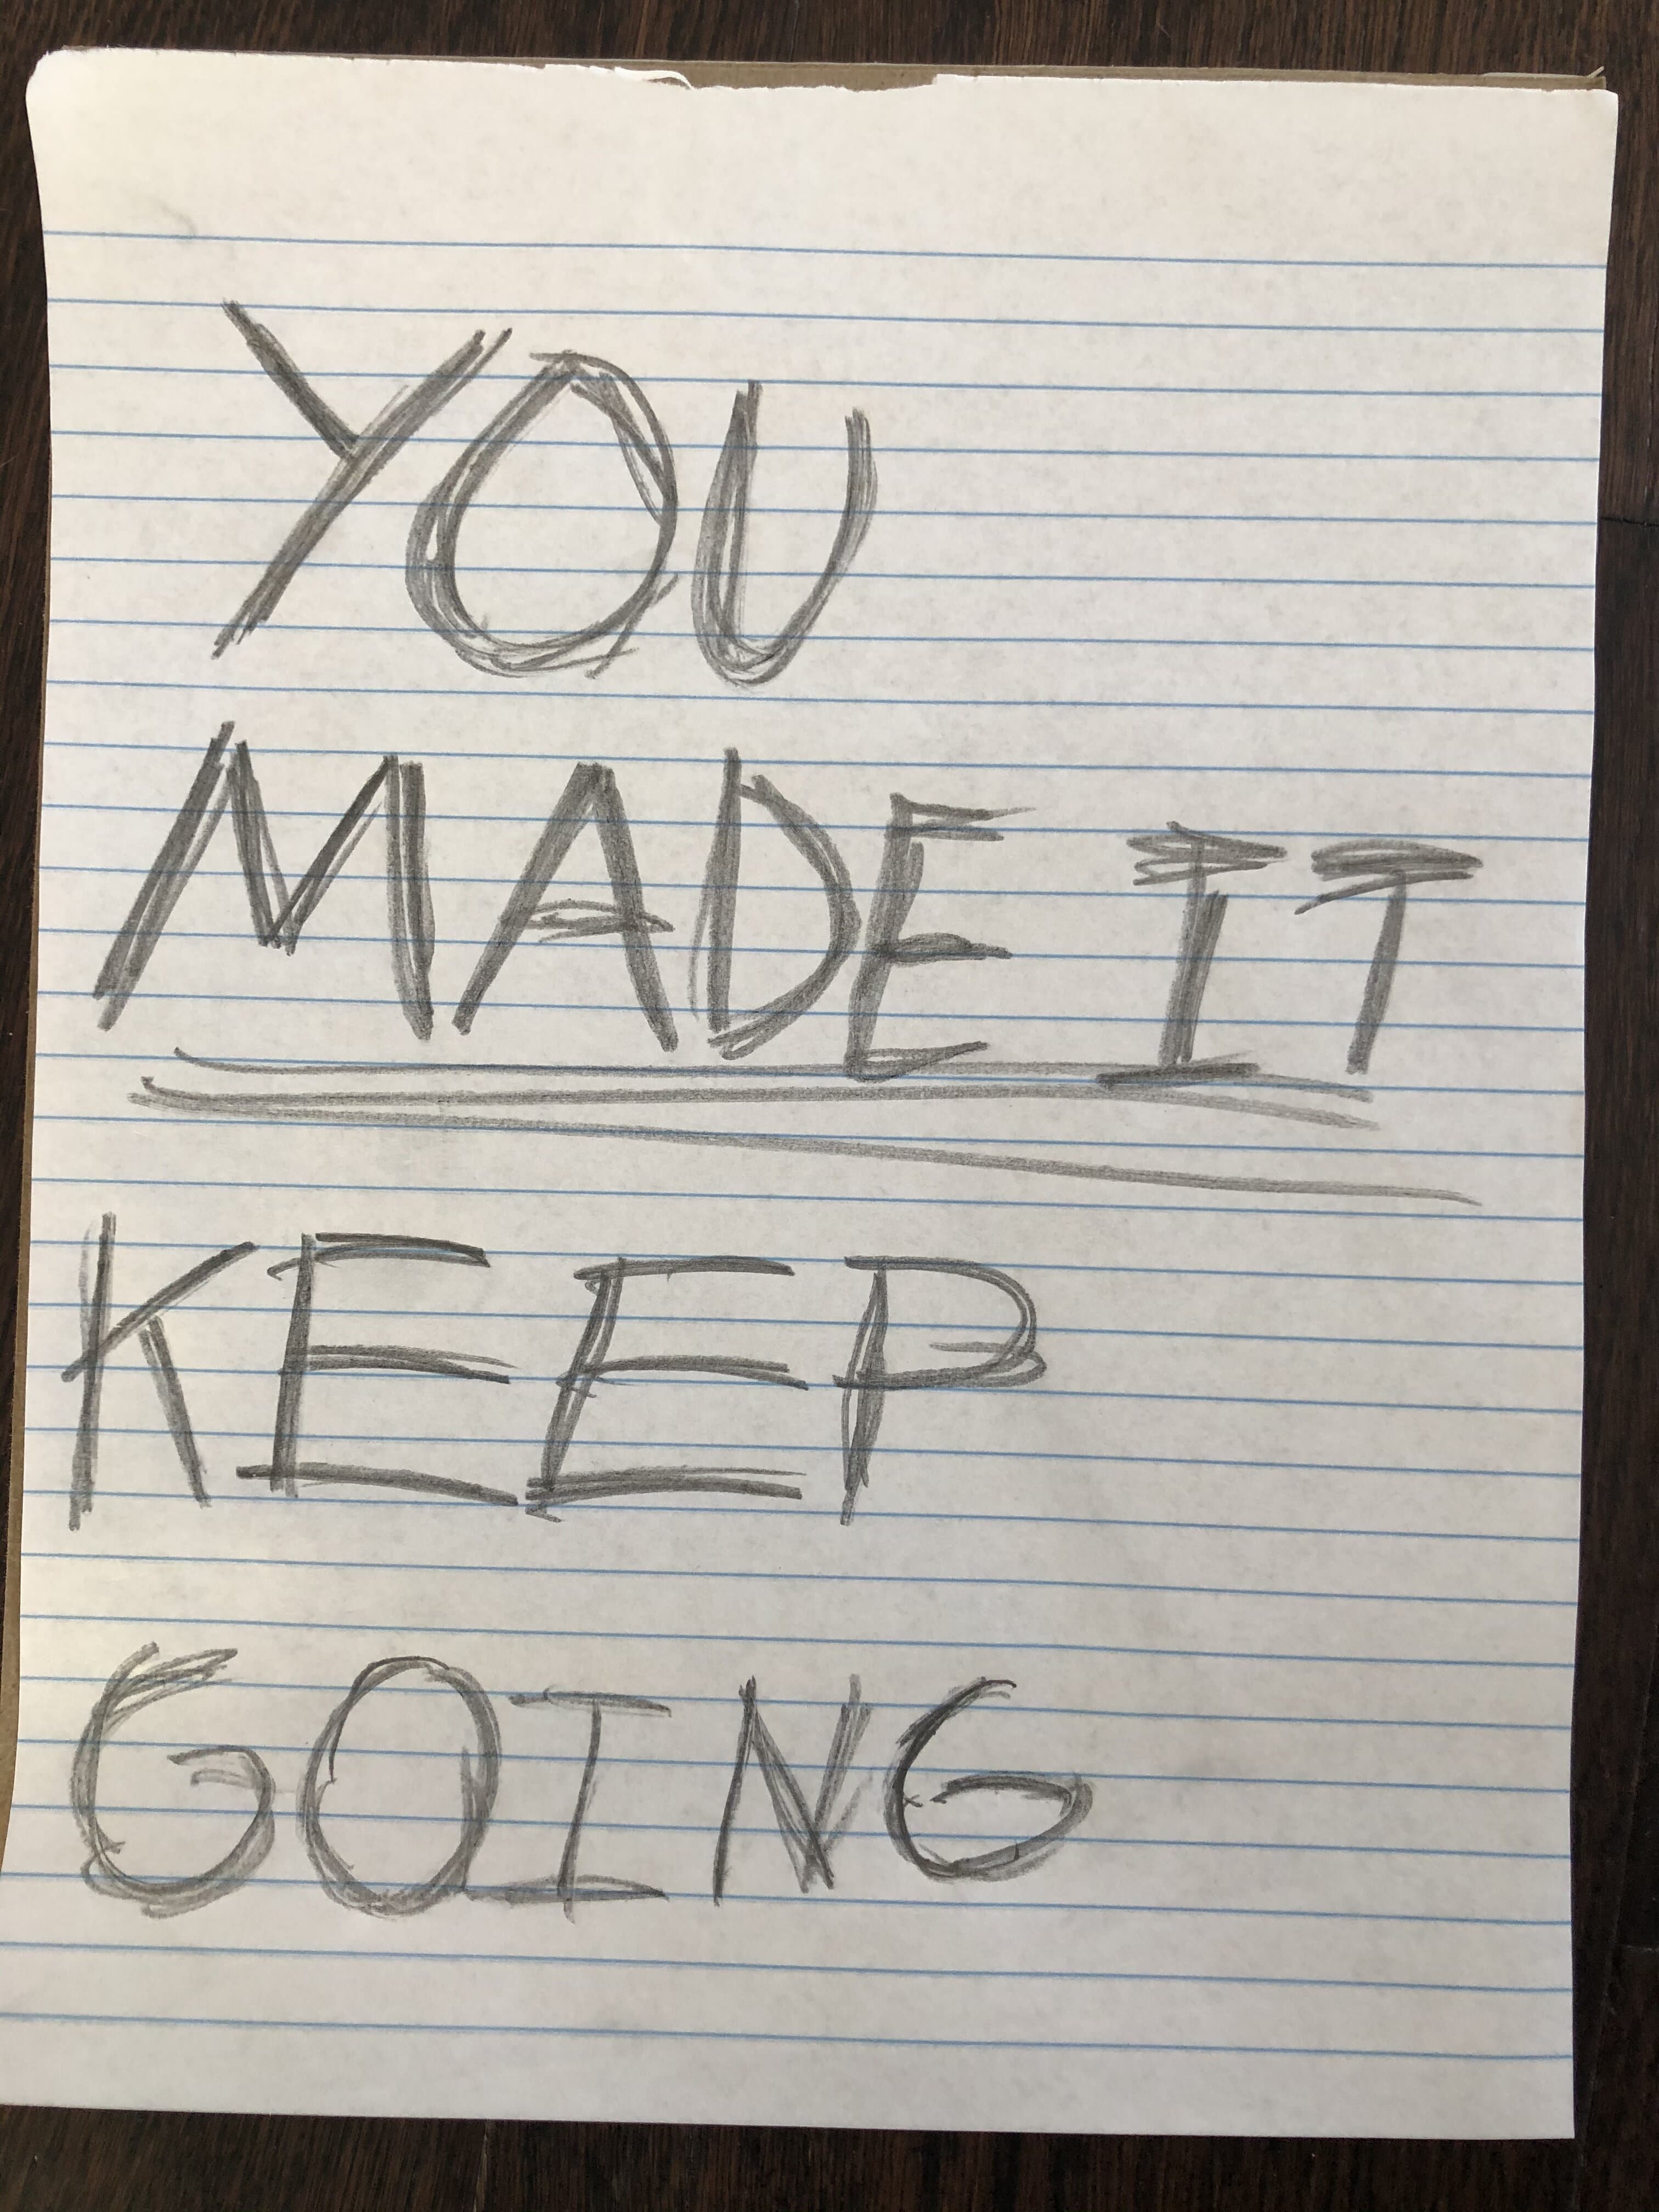 YOU
MADE IT
KEEP
GOING